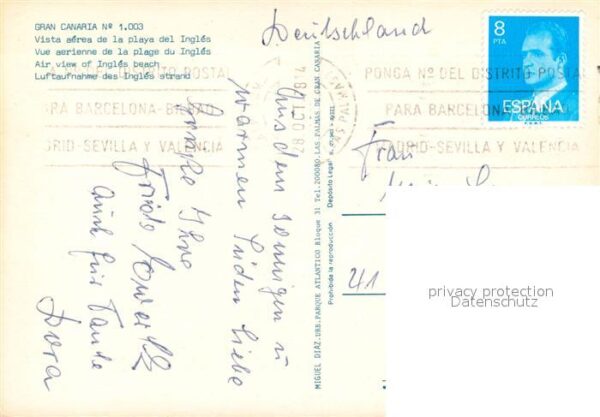 GRAN CANARIA Nº 1.003
Vista aérea de la playa del Inglés
Vue aerienne de la plage du Inglés
Air view of Inglés beach
Luftaufnahme des Inglés strand
Deutschland
8
PTA
ESPAÑA
CORREOS
PONGA Nº DEL DISTRITO POSTAL
PARA BARCELONA-BILBAO
MADRID-SEVILLA Y VALENCIA
Aus dem sonnigen u
warmen Süden liebe
Grüße Ihre
Frida
auch für Tante
Dora
MIGUEL DIAZ.URB.PARQUE ATLANTICO Bloque 31 Tel.200080.LAS PALMAS DE GRAN CANARIA
Prohibida la reproducción
Depósito Legal
Frau
41
privacy protection
Datenschutz